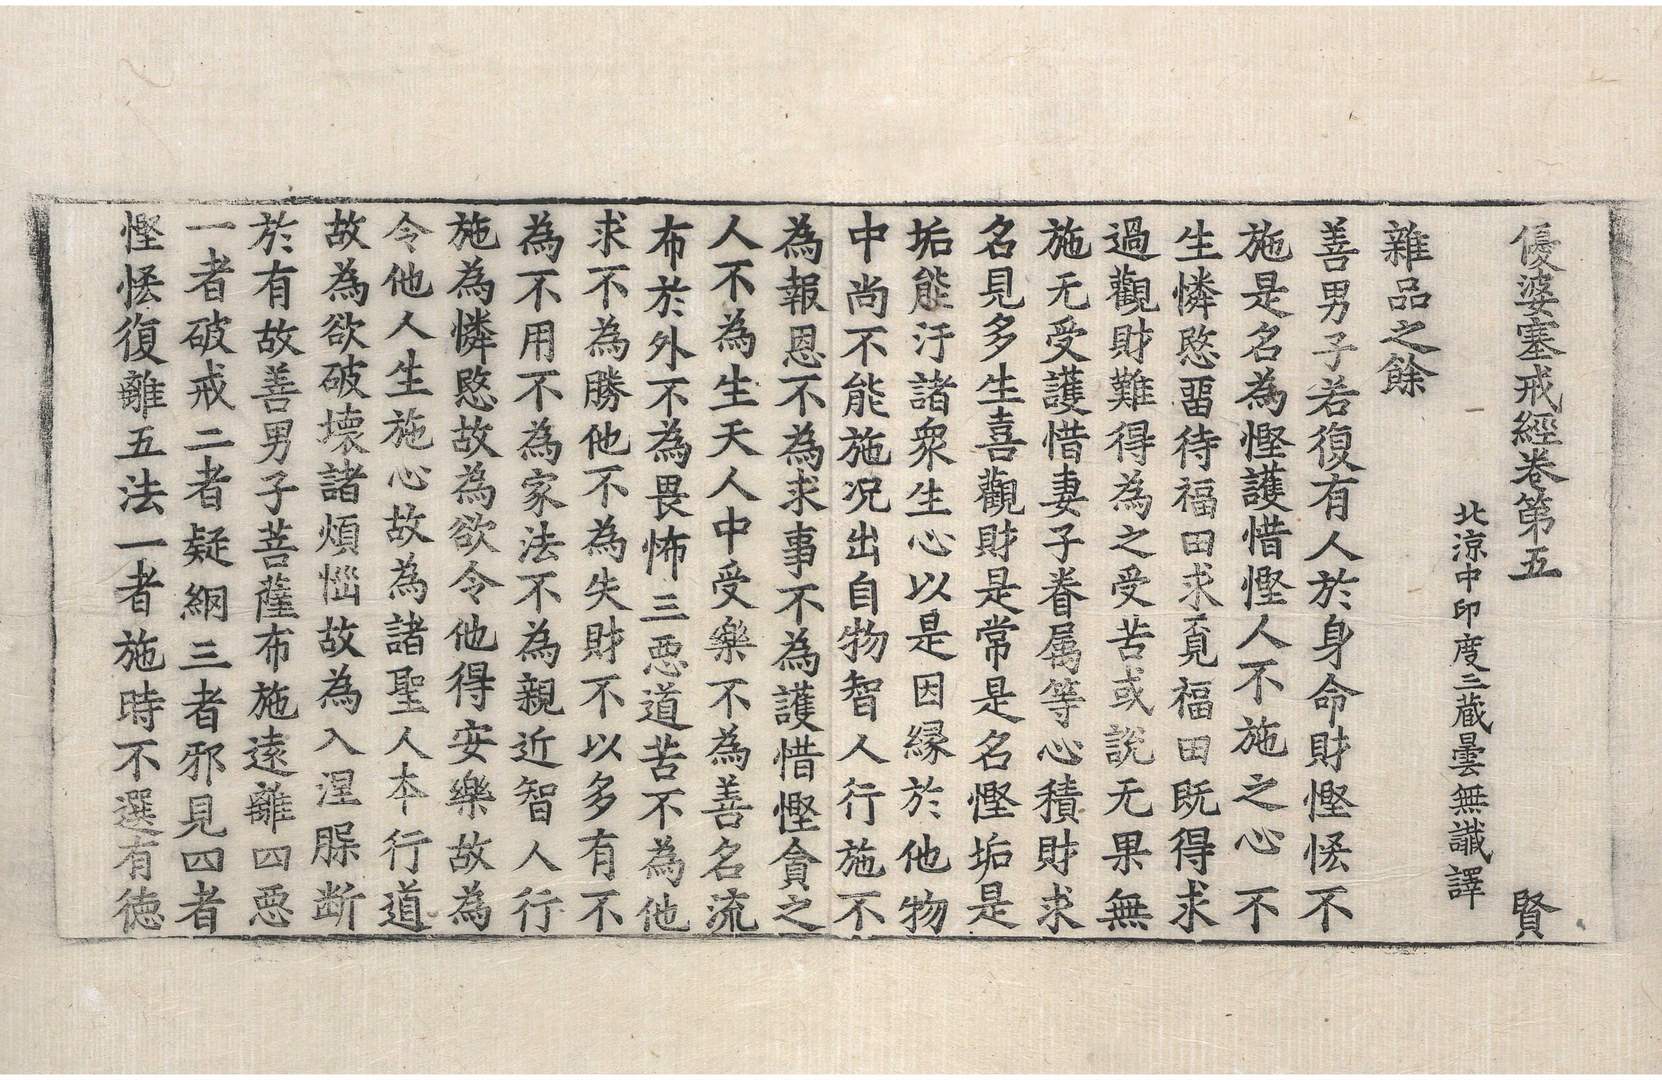 優婆塞戒經卷第五　賢
北涼中印度三藏曇無讖譯
雜品之餘
善男子若復有人於身命財慳悋不
施是名為慳護惜慳人不施之心不
生憐愍畱待福田求覓福田既得求
過觀財難得為之受苦或說无果無
施无受護惜妻子眷属等心積財求
名見多生喜觀財是常是名慳垢是
垢能汙諸衆生心以是因縁於他物
中尚不能施况出自物智人行施不
為報恩不為求事不為護惜慳貪之
人不為生天人中受樂不為善名流
布於外不為畏怖三惡道苦不為他
求不為勝他不為失財不以多有不
為不用不為家法不為親近智人行
施為憐愍故為欲令他得安樂故為
令他人生施心故為諸聖人本行道
故為欲破壊諸煩惱故為入涅槃断
於有故善男子菩薩布施逺離四惡
一者破戒二者疑網三者邪見四者
慳悋復離五法一者施時不選有徳